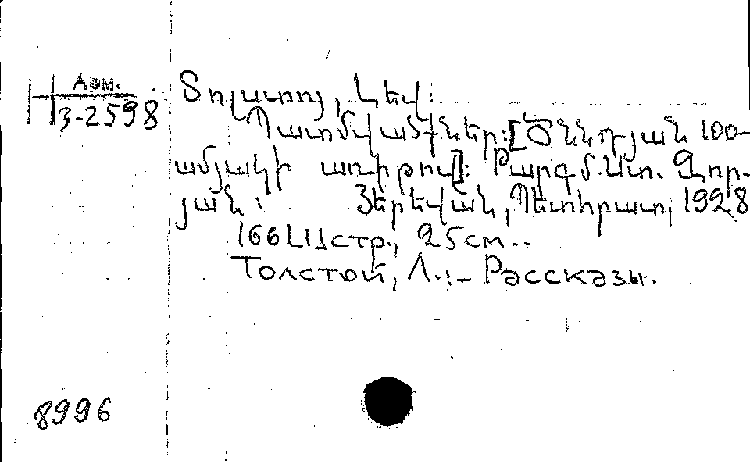 Арм.
3-2598
Տոլստոյ, Լեվ:
Պատմվածքներ: [Ծննդյան 100-
ամյակի առիթով]: Թարգմ. Ստ. Զոր-
յան: Յերեվան, Պետհրատ, 1928
166 [1] стр., 25 см..
Толстой, Л.:- Рассказы.
8996